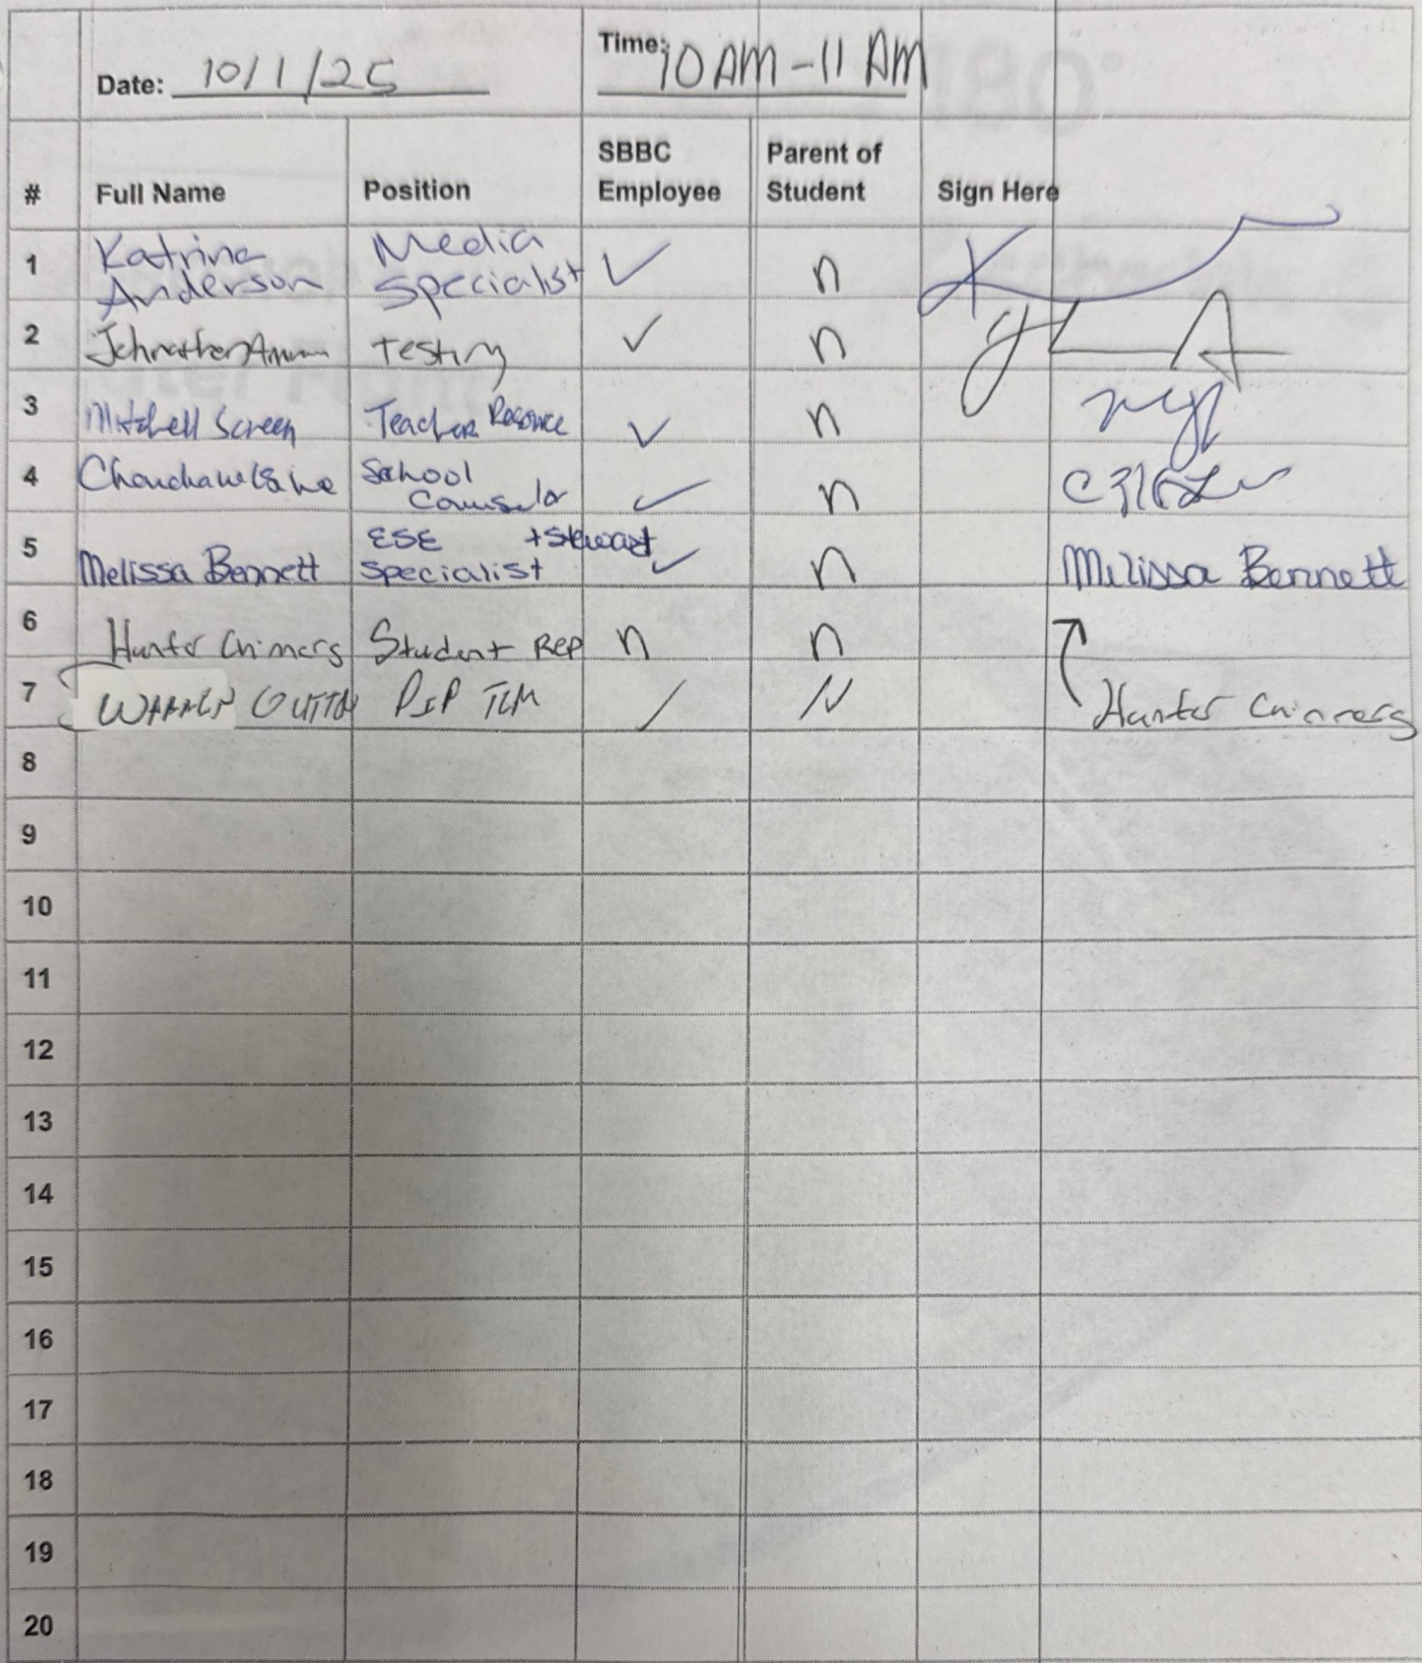 Date: 10/1/25 Time: 10 AM - 11 AM
# Full Name Position SBBC Employee Parent of Student Sign Here
1 Katrina Anderson Media Specialist ✓ n
2 Testing ✓ n
3 Mitchell Screen Teacher Resource ✓ n
4 School Counselor ✓ n
5 Melissa Bennett ESE Specialist + Steward ✓ n Melissa Bennett
6 Hunter Student Rep n n
7 Warren N Hunter
8
9
10
11
12
13
14
15
16
17
18
19
20